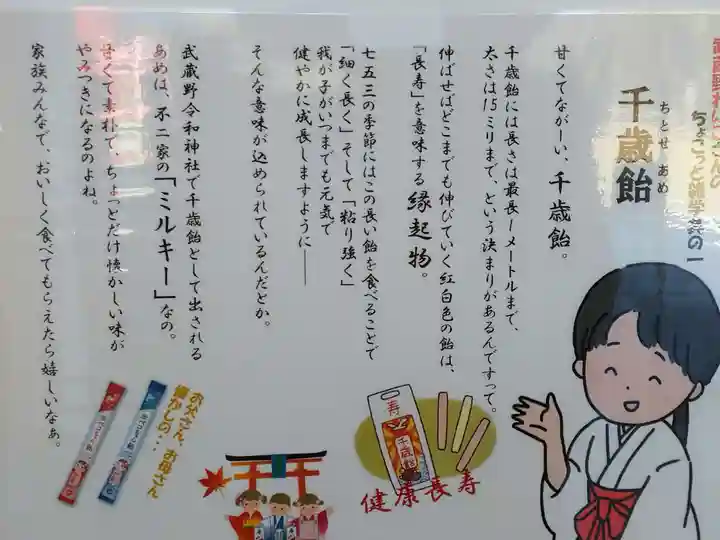 ちょこっと雑学集の一
ちとせ あめ
千歳飴
甘くてながーい、千歳飴。
千歳飴には長さは最長1メートルまで、
太さは15ミリまで、という決まりがあるんですって。
伸ばせばどこまでも伸びていく紅白色の飴は、
「長寿」を意味する縁起物。
七五三の季節にはこの長い飴を食べることで
「細く長く」そして「粘り強く」
我が子がいつまでも元気で
健やかに成長しますように――
そんな意味が込められているんだとか。
武蔵野令和神社で千歳飴として出される
あめは、不二家の「ミルキー」なの。
甘くて素朴で、ちょっとだけ懐かしい味が
やみつきになるのよね。
家族みんなで、おいしく食べてもらえたら嬉しいなぁ。
お父さん、お母さん
懐かしの…
寿
千歳飴
健康長寿